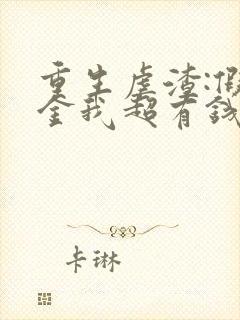 重生虐渣:假
金我超有钱
卡琳